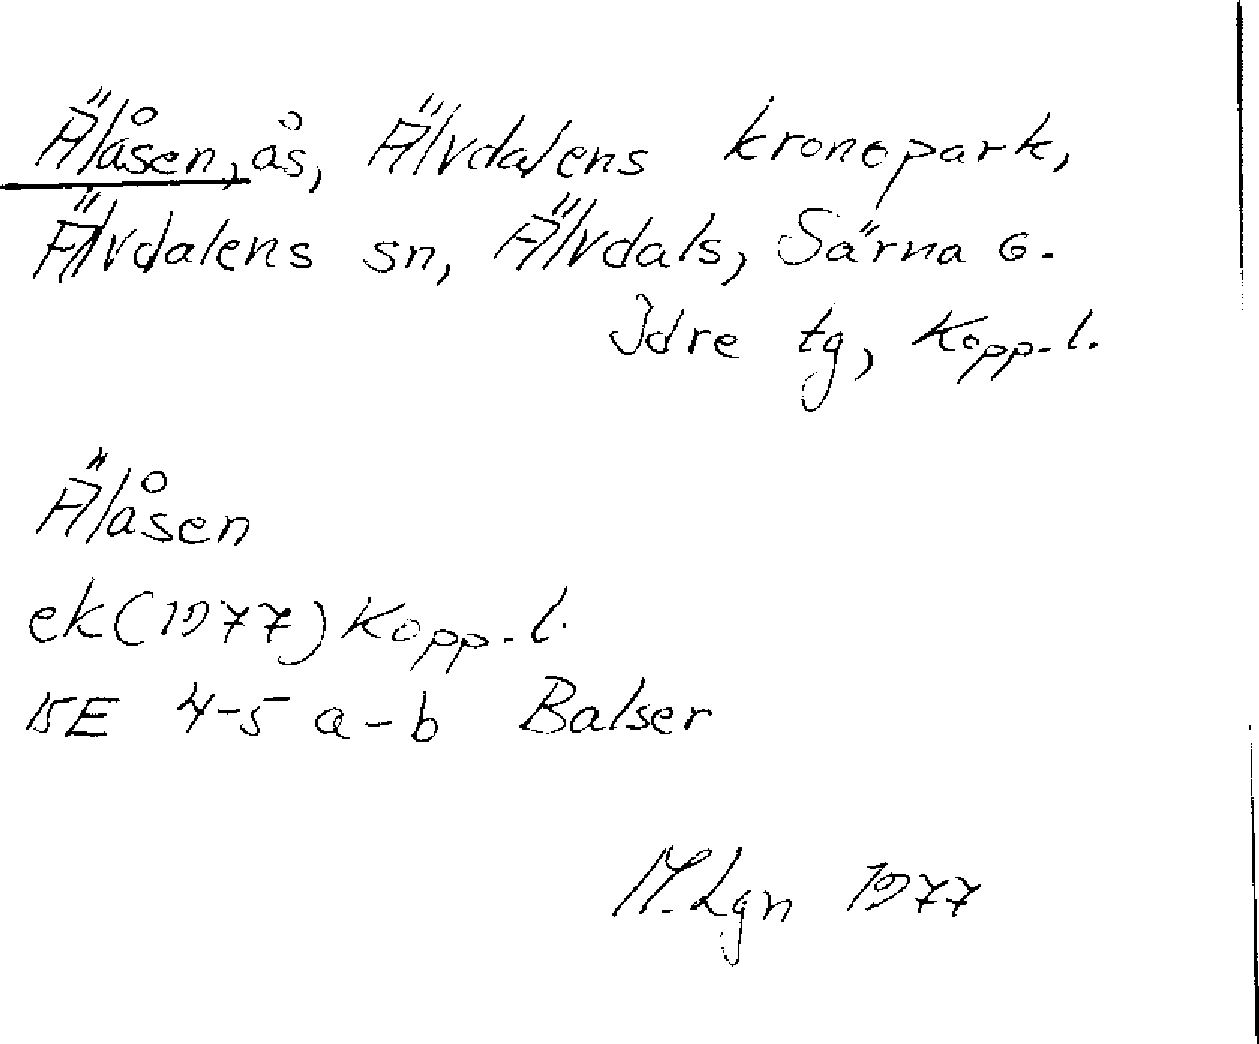 Älåsen, ås, Älvdalens kronopark,
Älvdalens sn, Älvdals, Särna o.
Idre tg, Kopp. l.
Älåsen
ek (1977) Kopp. l.
15E 4-5 a-b Balser
M.Lgn 1977